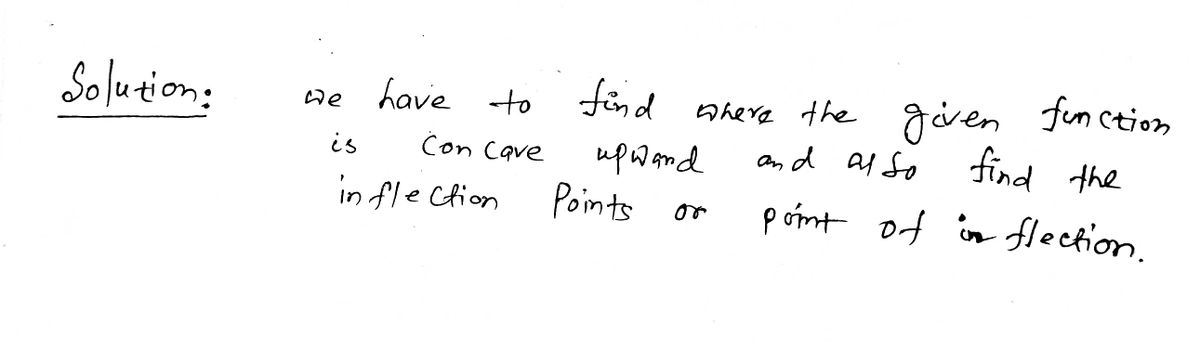 Solution: we have to find where the given function
is concave upward and also find the
inflection Points or point of inflection.